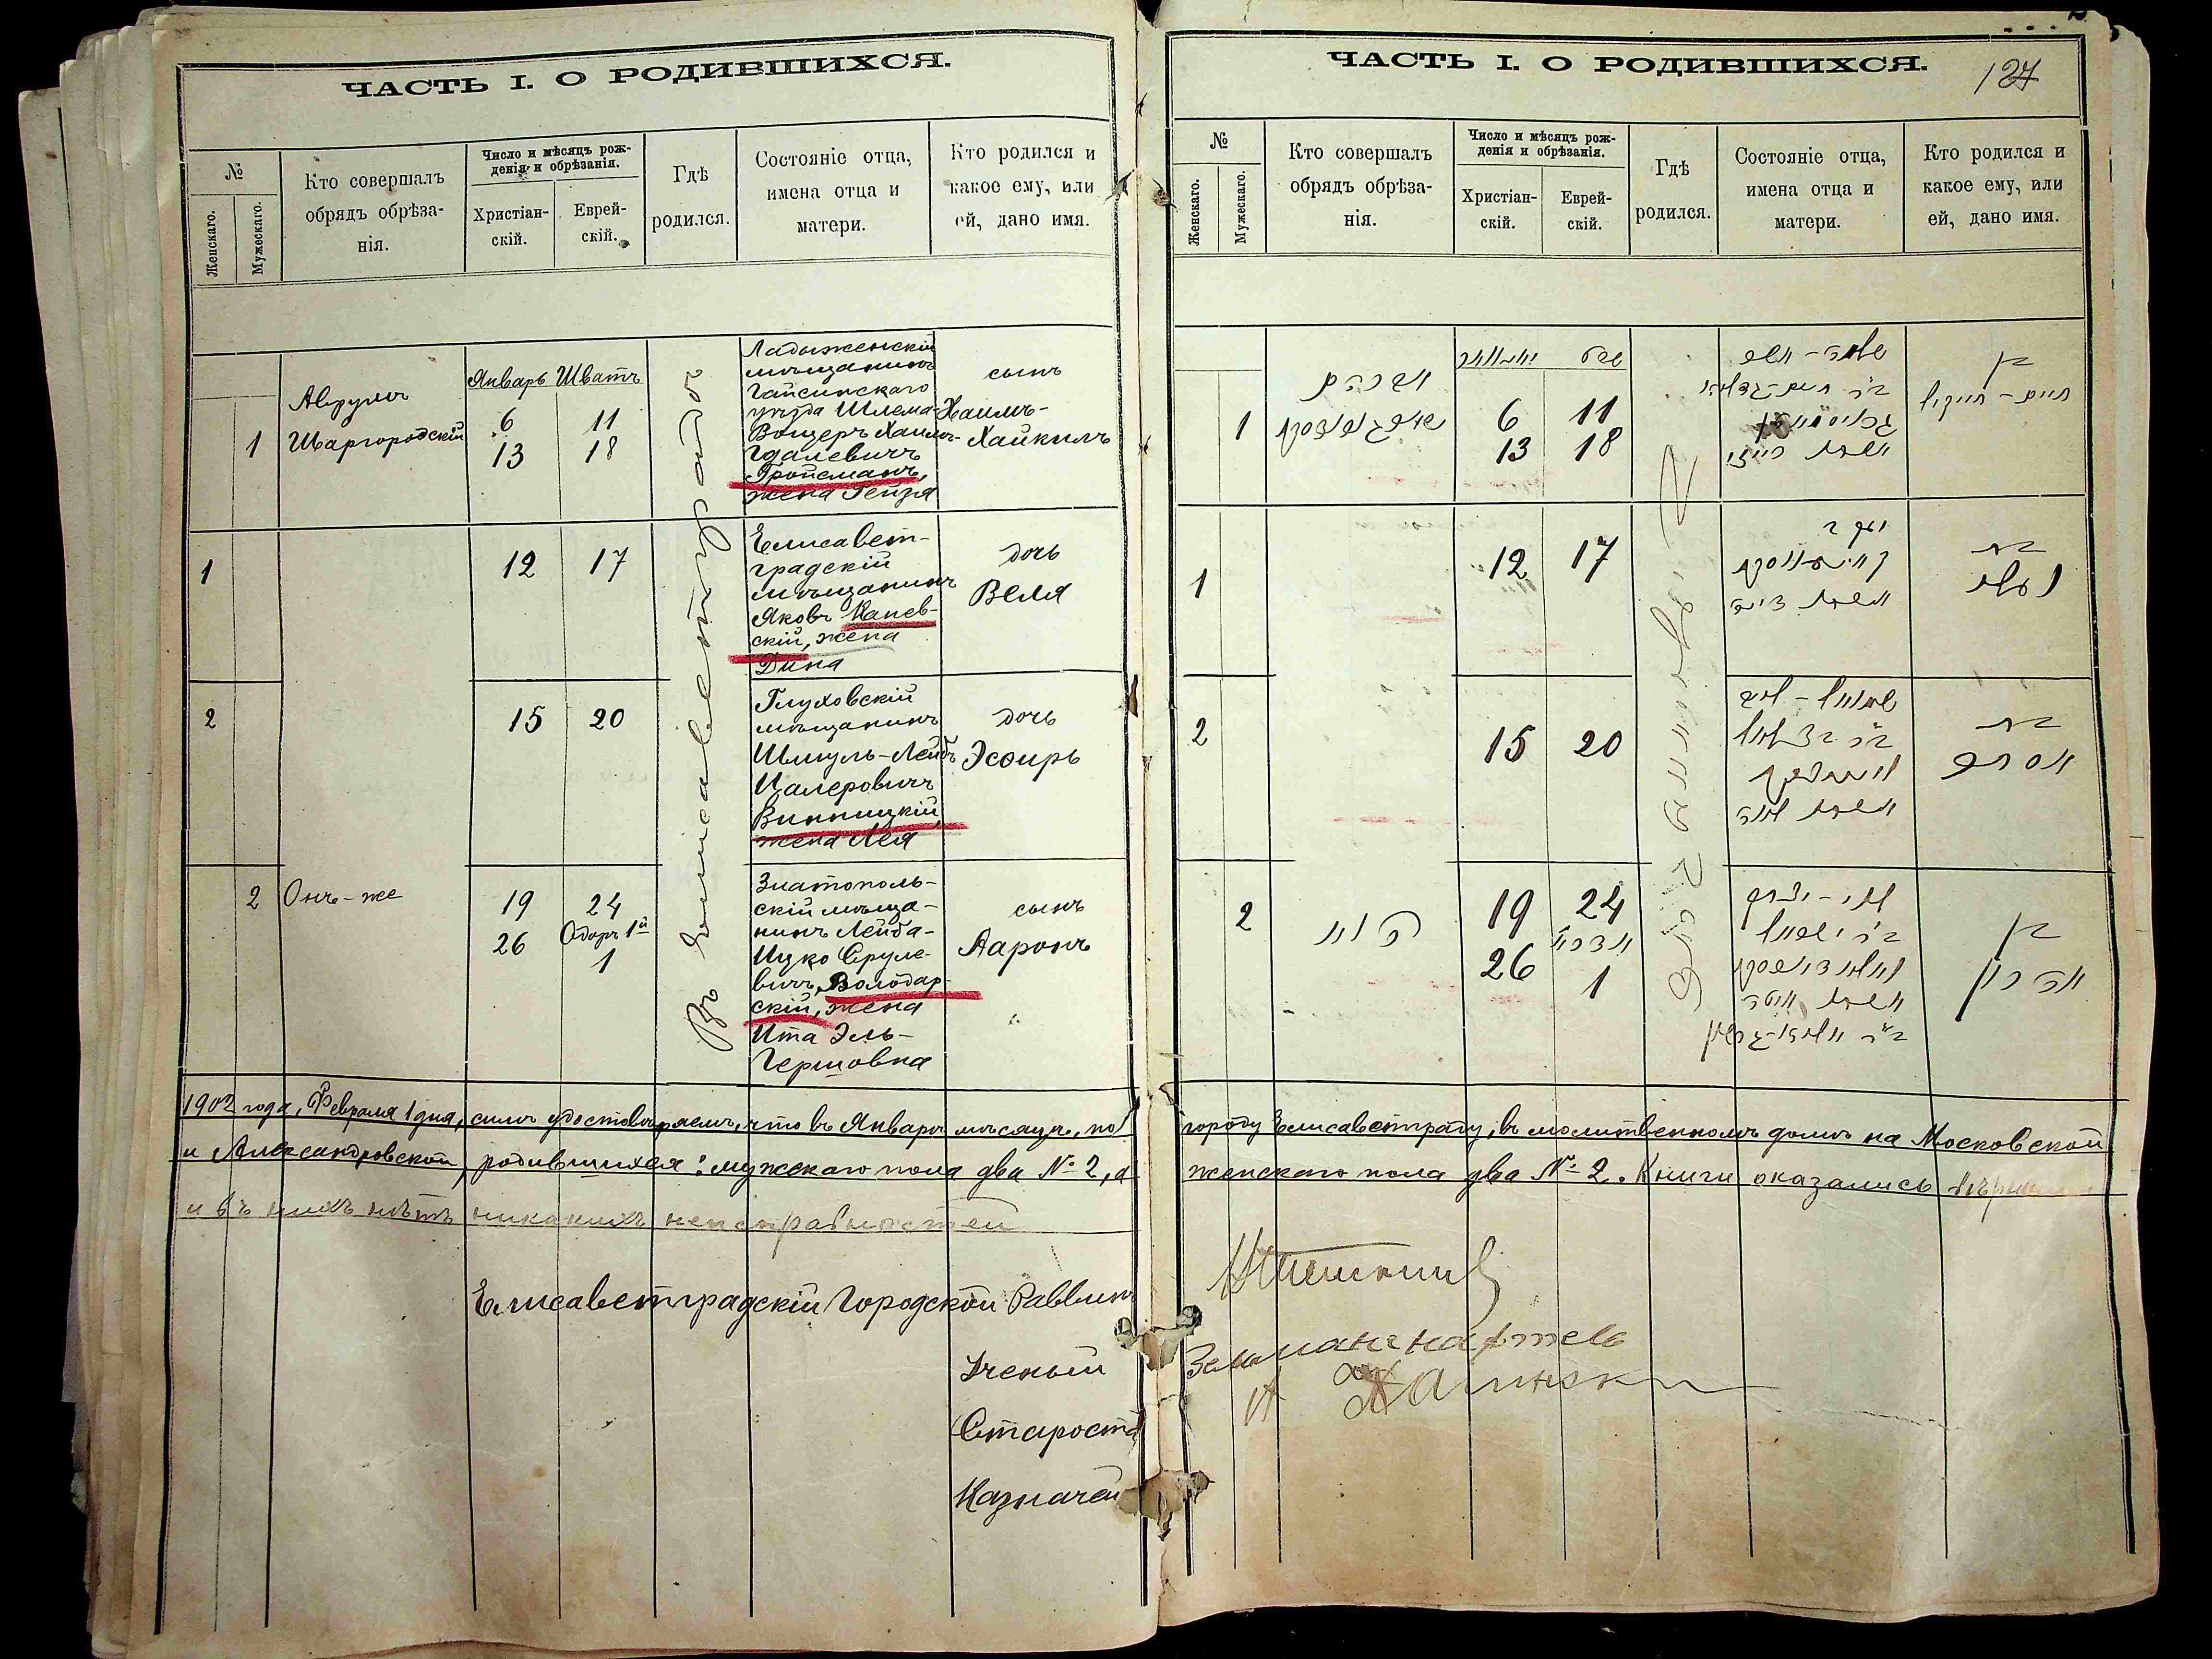 ЧАСТЬ I. О РОДИВШИХСЯ.
№
Женскаго.
Мужескаго.
Кто совершалъ
обрядъ обрѣза-
нія.
Число и мѣсяцъ рож-
денія и обрѣзанія.
Христіан-
скій.
Еврей-
скій.
Гдѣ
родился.
Состояніе отца,
имена отца и
матери.
Кто родился и
какое ему, или
ей, дано имя.
1
Аврумъ
Шаргородскій
Январь Шватъ
6 11
13 18
Въ Елисаветградѣ
Ладыженскій
мѣщанинъ
Гайсинскаго
уѣзда Шлема-
Вольф Хаимъ-
Гдалевичъ
Гройсманъ,
жена Рейзя
сынъ
Хаимъ-
Хайкилъ
1
12 17
Елисавет-
градскій
мѣщанинъ
Яковъ Канев-
скій, жена
Дина
дочь
Веля
2
15 20
Глуховскій
мѣщанинъ
Шмуль-Лейбъ
Цалеровичъ
Винницкій,
жена Лея
дочь
Эсѳирь
2
Онъ-же
19 24
Одоръ 1й
26 1
Златополь-
скій мѣща-
нинъ Лейба-
Ицко Сруле-
вичъ Володар-
скій, жена
Ита Эль-
Гершовна
сынъ
Ааронъ
1902 года, Февраля 1 дня, симъ удостовѣряемъ, что въ Январѣ мѣсяцѣ, по
и Александровской, родившихся: мужескаго пола два № 2, а
и въ нихъ нѣтъ никакихъ неисправностей
Елисаветградскій Городской Раввинъ
Ученый
Староста
Казначей
ЧАСТЬ I. О РОДИВШИХСЯ.
127
№
Женскаго.
Мужескаго.
Кто совершалъ
обрядъ обрѣза-
нія.
Число и мѣсяцъ рож-
денія и обрѣзанія.
Христіан-
скій.
Еврей-
скій.
Гдѣ
родился.
Состояніе отца,
имена отца и
матери.
Кто родился и
какое ему, или
ей, дано имя.
1
אברהם
שארגאראדסקי
יאנואר שבט
6 11
13 18
גרויסמאן
אשתו רייזי
בן
חיים-חייקיל
1
12 17
יעקב
קאניעווסקי
אשתו דינה
בת
וועליא
2
15 20
שמואל-ליב
וויניצקי
אשתו לאה
בת
אסתר
2
הנ״ל
19 24
26 1
ב״ר ישראל
וואלאדארסקי
אשתו איטה
בן
אהרן
городу Елисаветграду, въ молитвенномъ домѣ на Московской
женскаго пола два № 2. Книги оказались вѣрными